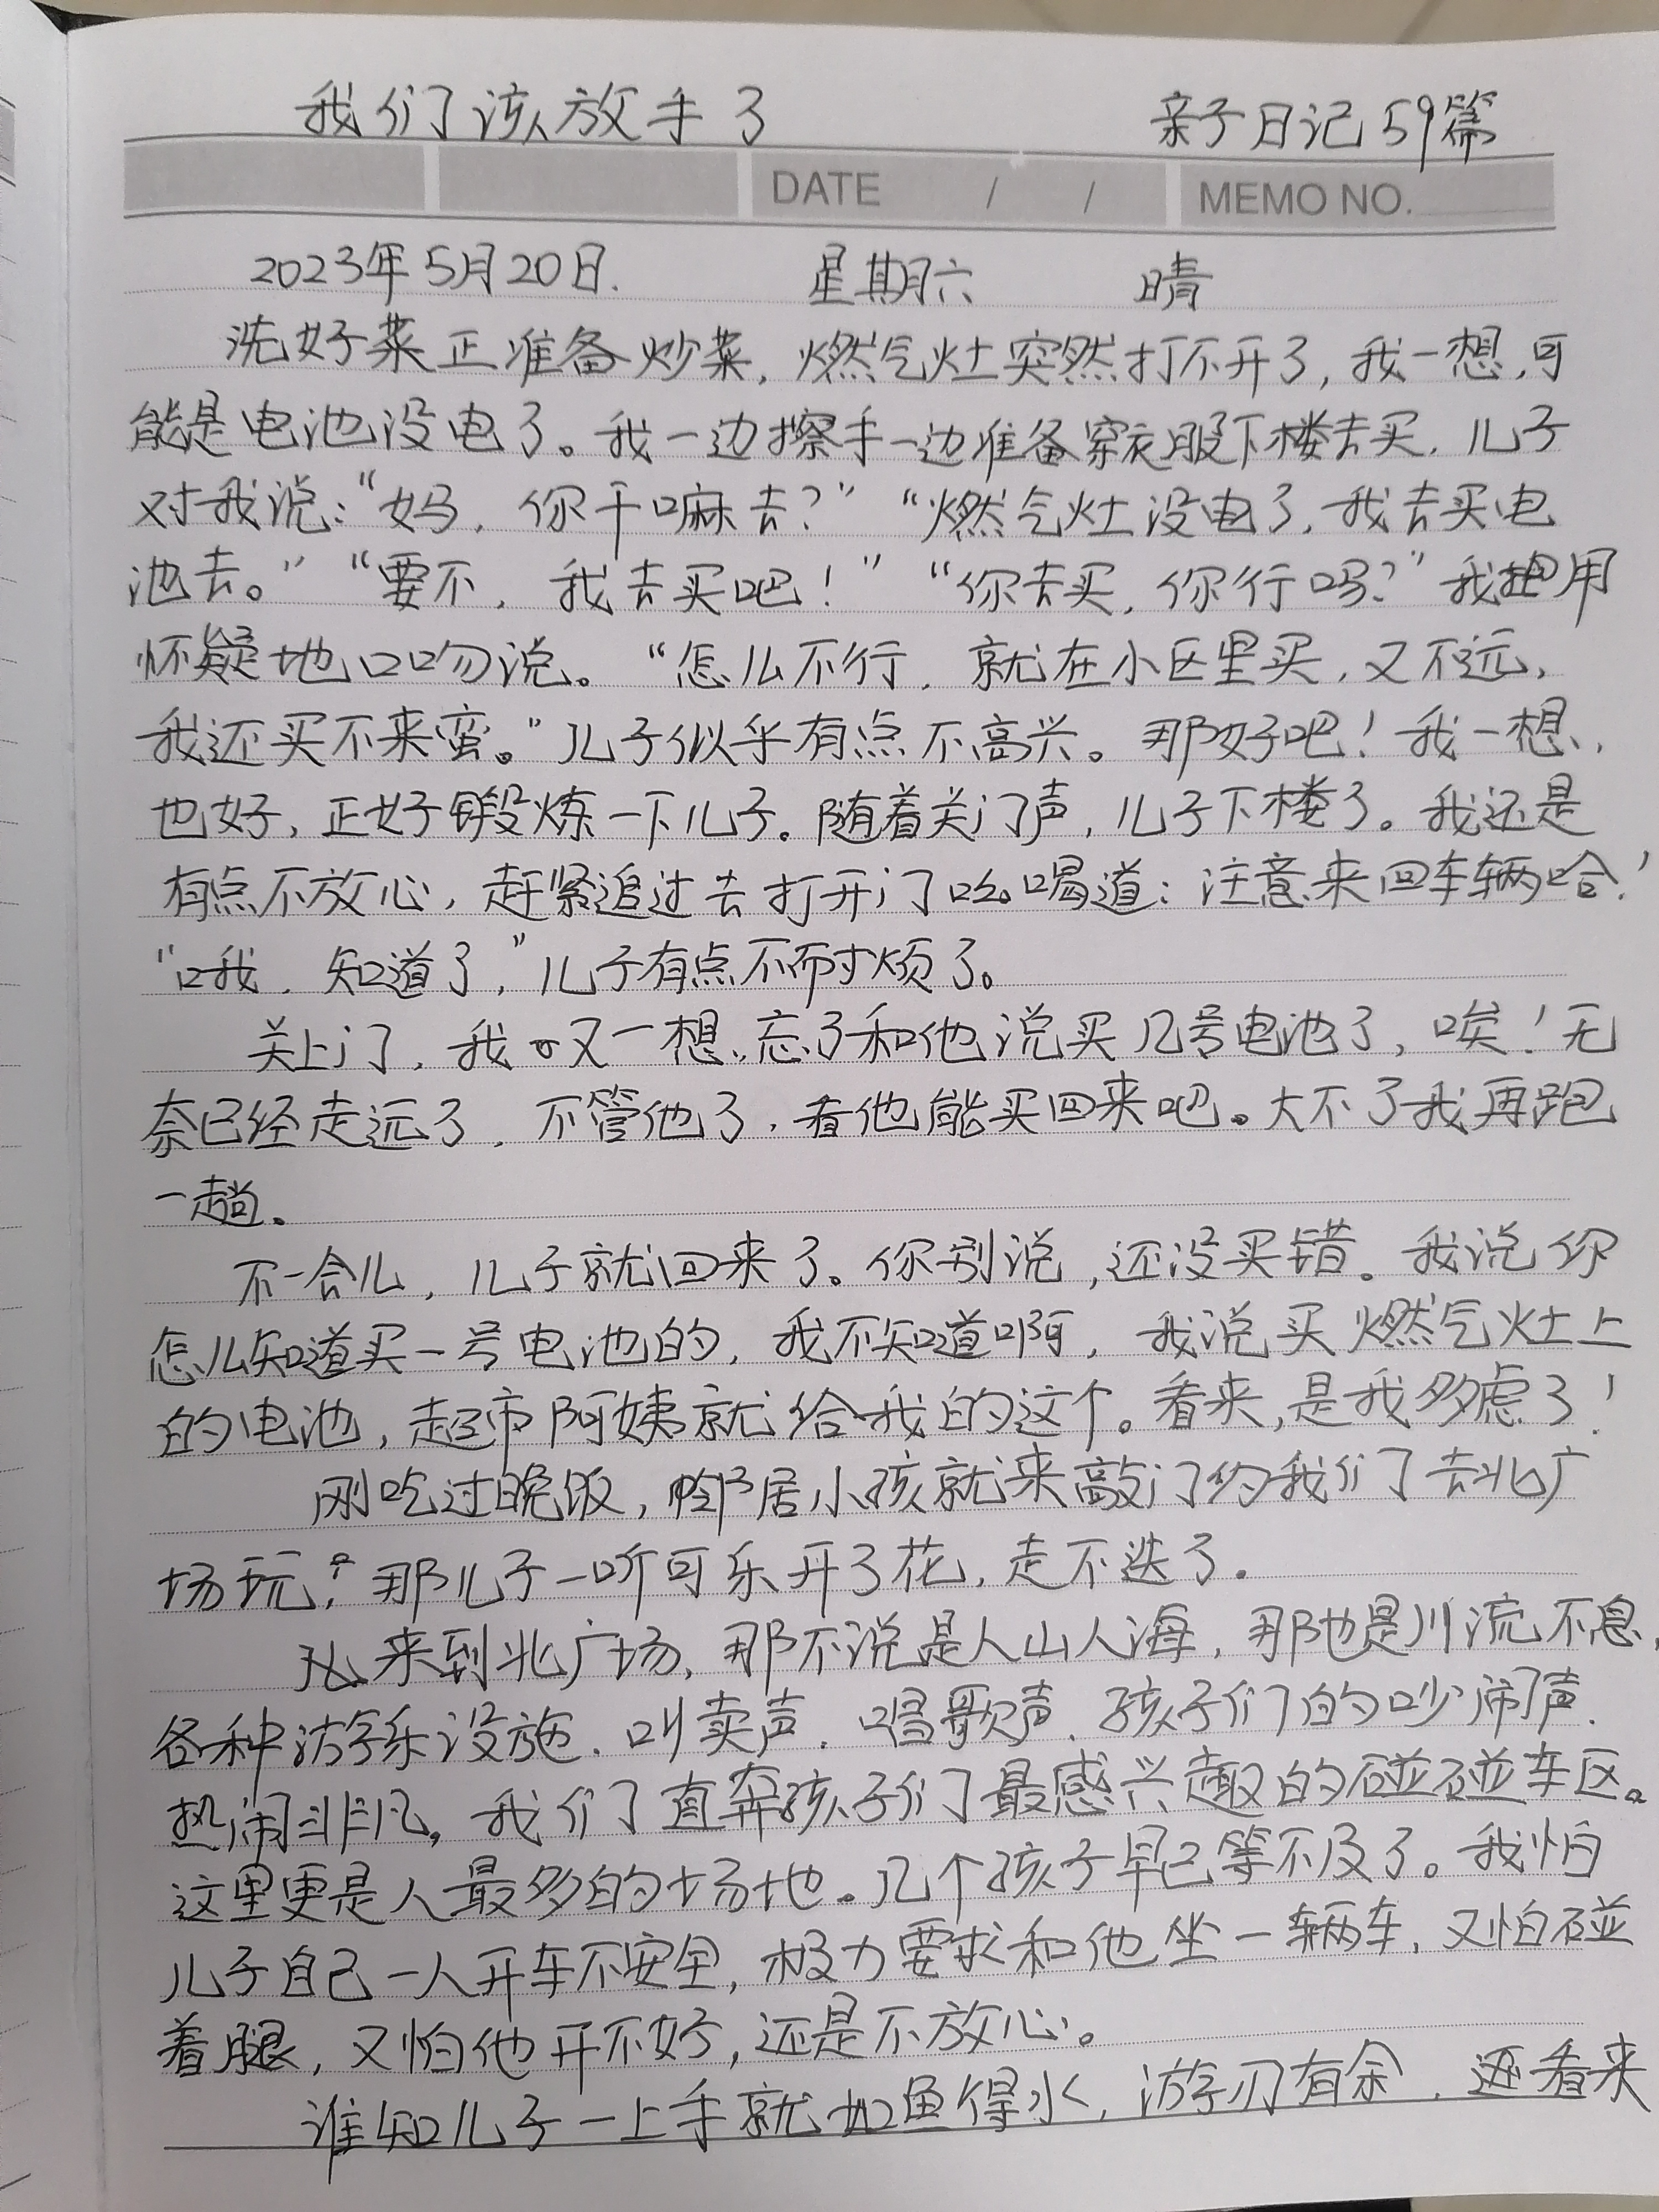 我们该放手了 亲子日记59篇
DATE / / MEMO NO.
2023年5月20日. 星期六 晴
洗好菜正准备炒菜,燃气灶突然打不开了,我一想,可
能是电池没电了。我一边擦手一边准备穿衣服下楼去买,儿子
对我说:“妈,你干嘛去?”“燃气灶没电了,我去买电
池去。”“要不,我去买吧!”“你去买,你行吗?”我用
怀疑地口吻说。“怎么不行,就在小区里买,又不远,
我还买不来蛮。”儿子似乎有点不高兴。那好吧!我一想,
也好,正好锻炼一下儿子。随着关门声,儿子下楼了。我还是
有点不放心,赶紧追过去打开门吆喝道:注意来回车辆哈!
“哦,知道了,”儿子有点不耐烦了。
关上门,我又一想,忘了和他说买几号电池了,唉!无
奈已经走远了,不管他了,看他能买回来吧。大不了我再跑
一趟。
不一会儿,儿子就回来了。你别说,还没买错。我说你
怎么知道买一号电池的,我不知道啊,我说买燃气灶上
的电池,超市阿姨就给我的这个。看来,是我多虑了!
刚吃过晚饭,邻居小孩就来敲门约我们了去北广
场玩,那儿子一听可乐开了花,走不迭了。
来到北广场,那不说是人山人海,那也是川流不息,
各种游乐设施、叫卖声、唱歌声、孩子们的吵闹声、
热闹非凡。我们了直奔孩子们最感兴趣的碰碰车区。
这里更是人最多的场地。几个孩子早已等不及了。我怕
儿子自己一人开车不安全,极力要求和他坐一辆车,又怕碰
着腿,又怕他开不好,还是不放心。
谁知儿子一上手就如鱼得水,游刃有余,还看来